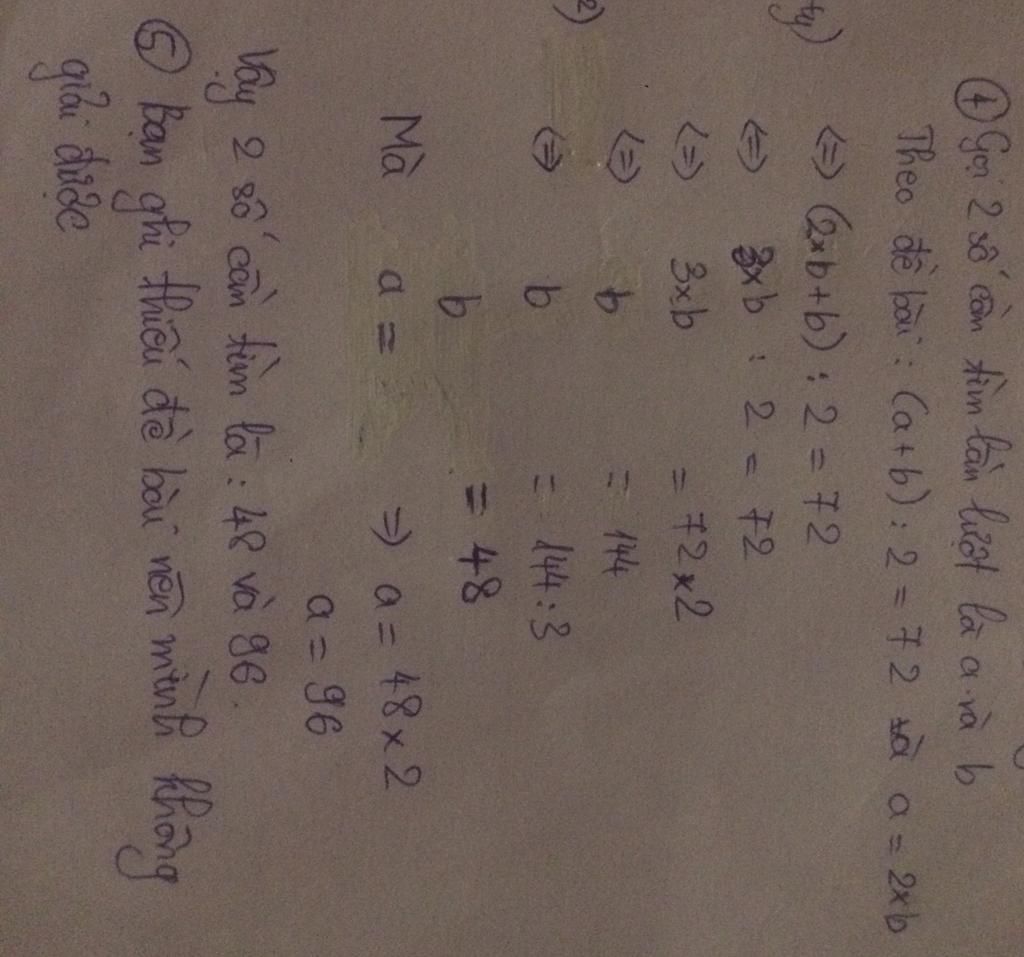 ④ Gọi 2 số cần tìm lần lượt là a và b
Theo đề bài : (a+b) : 2 = 72 và a = 2xb
ty)
<=> (2xb+b) : 2 = 72
<=> 3xb : 2 = 72
<=> 3xb = 72x2
<=> b = 144
2)
<=> b = 144:3
b = 48
Mà a = => a = 48x2
a = 96
Vậy 2 số cần tìm là : 48 và 96.
⑤ Bạn ghi thiếu đề bài nên mình không
giải được